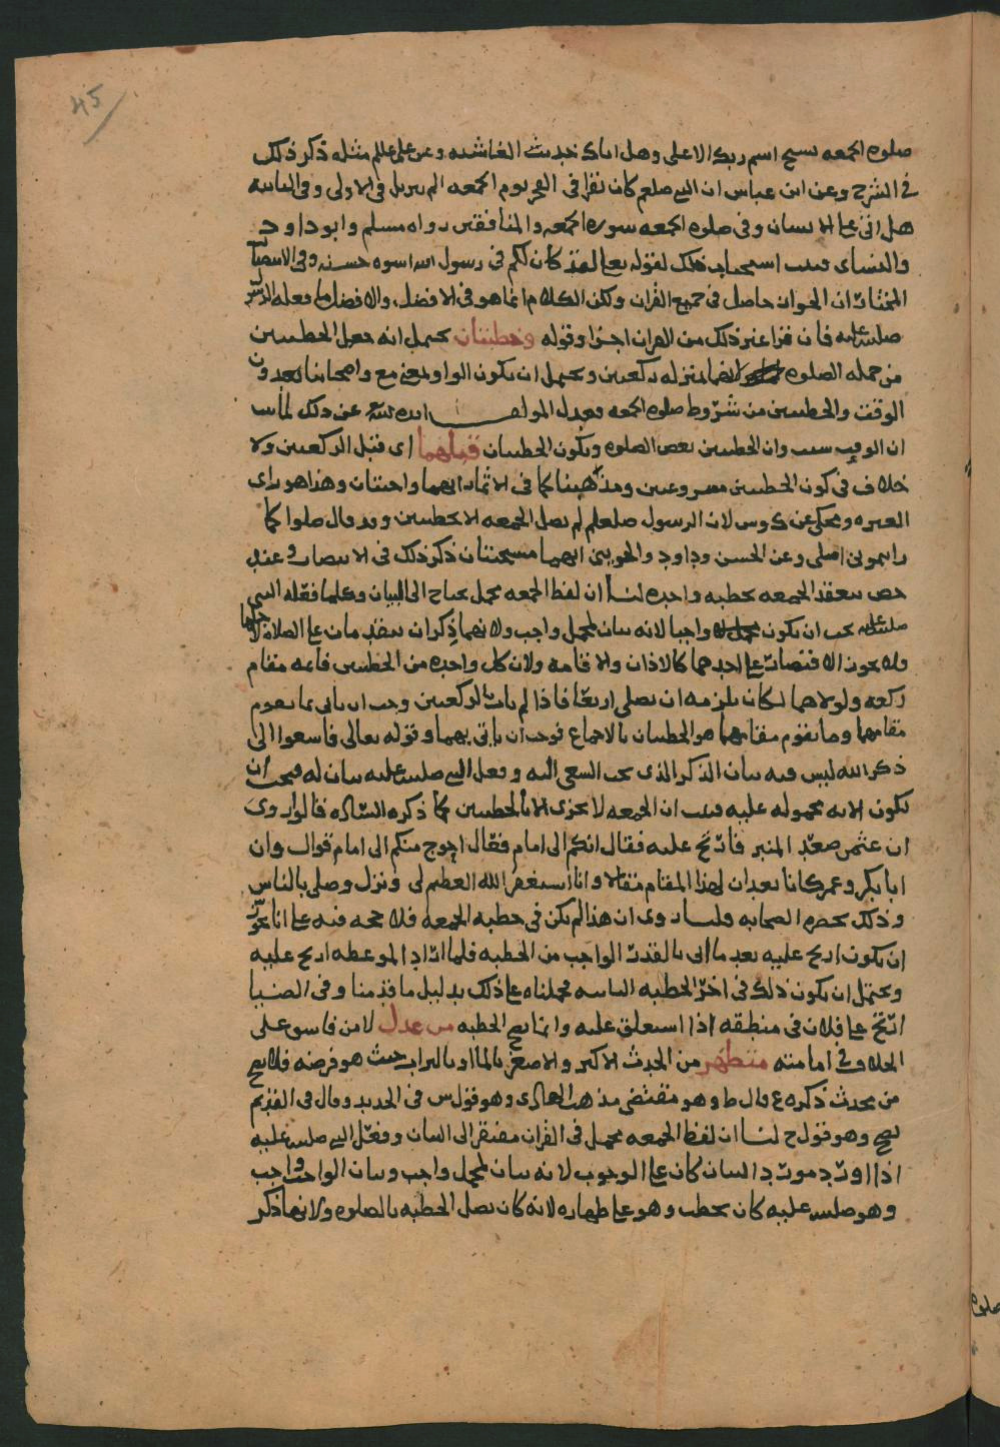 45
صلوه الجمعه سبح اسم ربك الاعلى وهل اتاك حديث الغاشيه وعن علي علم مثله ذكر ذلك
في الشرح وعن ابن عباس ان النبي صلعم كان يقرا في الفجر يوم الجمعه الم تنزيل في الاولى وفي الثانيه
هل اتى على الانسان وفي صلوه الجمعه سوره الجمعه والمنافقين رواه مسلم وابو داود
والنسائي فثبت استحباب ذلك لقوله تعالى لقد كان لكم في رسول الله اسوه حسنه وفي الانتصار
المختار ان الجواز حاصل في جميع القران ولكن الكلام انما هو في الافضل والافضل ما فعله الرسول
صلى الله عليه فان قرا غير ذلك من القران اجزا وقوله وخطبتان يحتمل انه جعل الخطبتين
من جمله الصلوه انهما بمنزله ركعتين ويحتمل ان يكون الواو بمعنى مع واصحابنا يعدون
الوقت والخطبتين من شروط صلوه الجمعه فعدل المولف ايده الله عن ذلك لما ثبت
ان الوقت سبب وان الخطبتين بعض الصلوه وتكون الخطبتان قبلهما اي قبل الركعتين ولا
خلاف في كون الخطبتين مشروعتين ومذهبنا كما في الاثمار انهما واجبتان وهذا هو راي
العتره ويحكى عن ك وس لان الرسول صلعم لم يصل الجمعه الا بخطبتين وقد قال صلوا كما
رايتموني اصلي وعن الحسن وداود والجويني انهما مستحبتان ذكر ذلك في الانتصار وعند
حص تنعقد الجمعه بخطبه واحده لنا ان لفظ الجمعه مجمل يحتاج الى البيان وكلما فعله النبي
صلى الله عليه يجب ان يكون واجبا لانه بيان لمجمل واجب ولانهما ذكران يتقدمان على الصلاه
ولا يجوز الاقتصار على احدهما كالاذان والاقامه ولان كل واحده من الخطبتين قائمه مقام
ركعه ولولاهما لكان يلزمه ان يصلي اربعا فاذا لم يات بالركعتين وجب ان ياتي بما يقوم
مقامهما وما يقوم مقامهما هو الخطبتان بالاجماع فوجب ان ياتي بهما وقوله تعالى فاسعوا الى
ذكر الله ليس فيه بيان الذكر الذي يجب السعي اليه وفعل النبي صلى الله عليه بيان له فيجب ان
تكون الايه محموله عليه فثبت ان الجمعه لا تجزي الا بالخطبتين كما ذكره الساده قالوا روي
ان عثمن صعد المنبر فارتج عليه فقال انكم الى امام فعال احوج منكم الى امام قوال وان
ابا بكر وعمر كانا يعدان لهذا المقام مقالا وانا استغفر الله العظيم لي ونزل وصلى بالناس
وذلك بحضره الصحابه قلنا روي ان هذا لم يكن في خطبه الجمعه فلا حجه فيه على انا نجوز
ان يكون ارتج عليه بعد ما اتى بالقدر الواجب من الخطبه فلما اراد الموعظه ارتج عليه
ويحتمل ان يكون ذلك في اخر الخطبه الثانيه فحملناه على ذلك بدليل ما قدمنا وفي الضيا
ارتج على فلان في منطقه اذا استغلق عليه وانما تصح الخطبه من عدل لا من فاسق على
الخلاف في امامته متطهر من الحدث الاكبر والاصغر بالما او بالتراب حيث هو فرضه فلا تصح
من محدث ذكره ع وال ط وهو مقتضى مذهب الهادي وهو قول س في الجديد وقال في القديم
تصح وهو قول ح لنا ان لفظ الجمعه مجمل في القران مفتقر الى البيان وفعل النبي صلى الله عليه
اذا ورد مورد البيان كان على الوجوب لانه بيان لمجمل واجب وبيان الواجب واجب
وهو صلى الله عليه كان يخطب وهو على طهاره لانه كان يصل الخطبه بالصلوه ولانها ذكر